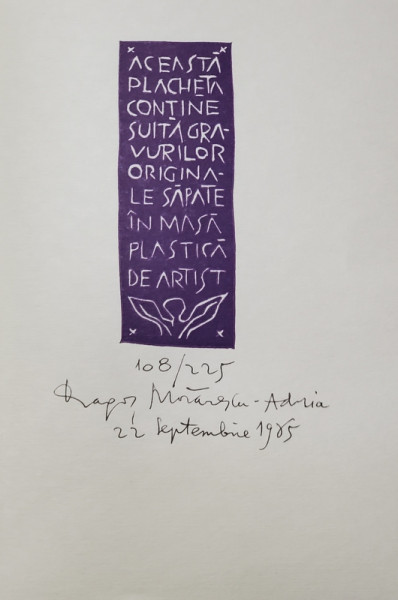 ACEASTĂ
PLACHETĂ
CONȚINE
SUITĂ GRA-
VURILOR
ORIGINA-
LE SĂPATE
ÎN MASĂ
PLASTICĂ
DE ARTIST
108/225
Dragoș Morărescu-Adria
22 Septembrie 1985